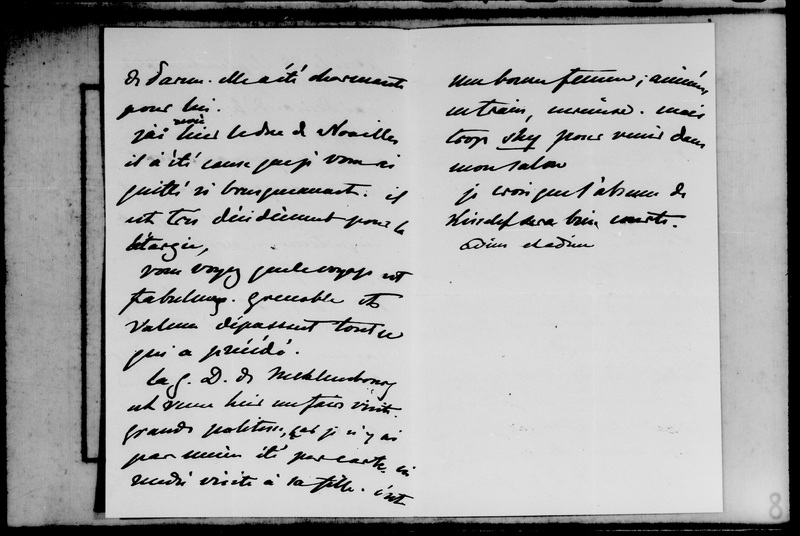 de Paris. elle a été charmante
pour lui.
j'ai revu hier le duc de Noailles
il a été cause que je vous ai
quitté si brusquement. il
est très décidément pour la
létargie,
vous voyez que le voyage est
fabuleux. grenoble et
Valence dépassent tout ce
qui a précédé.
la g. D. de Mecklembourg
est venue hier me faire visite.
grande politesse, car je n'y ai
pas même été par carte. ni
rendu visite à sa fille. c'est
une bonne femme; animée,
en train, curieuse. mais
trop shy pour venir dans
mon salon
je crois que l'absence de
Kisseleff sera bien courte.
adieu et adieu
8